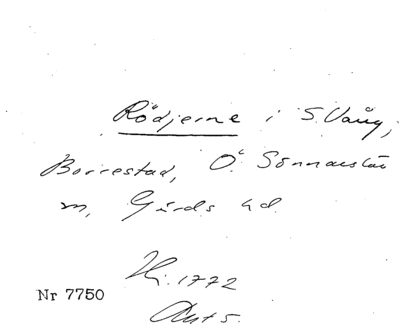 Rödjerne i S. Vång,
Borrestad, Ö. Sönnarslöv
m, Gärds hd.
Hi. 1772
Nr 7750
Akt 5.